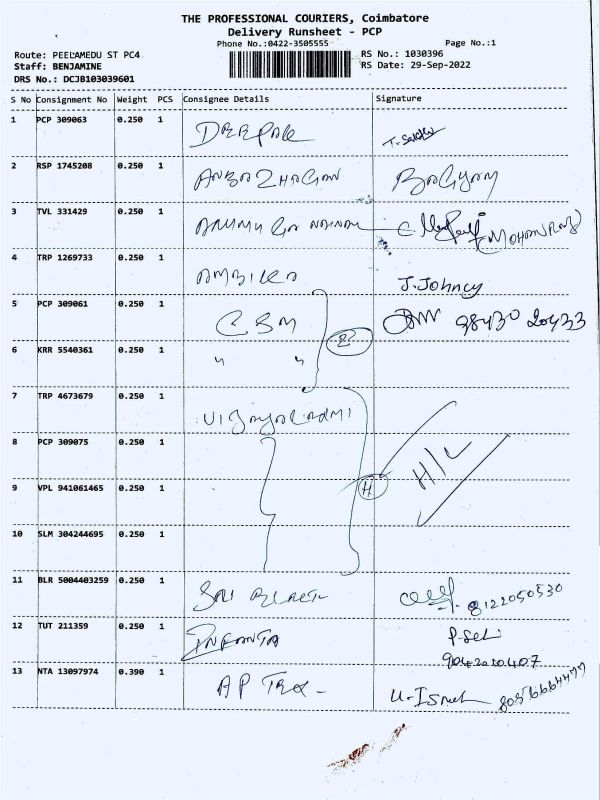 THE PROFESSIONAL COURIERS, Coimbatore
Delivery Runsheet - PCP
Phone No.:0422-3505555
Page No.:1
Route: PEELAMEDU ST PC4
RS No.: 1030396
Staff: BENJAMINE
RS Date: 29-Sep-2022
DRS No.: DCJB103039601
S No Consignment No Weight PCS Consignee Details Signature
1 PCP 309063 0.250 1 DEEPAK
2 RSP 1745208 0.250 1 ANBAZHAGAN BAGYAM
3 TVL 331429 0.250 1 MOHANRAJ
4 TRP 1269733 0.250 1 AMBIKA J. Johncy
5 PCP 309061 0.250 1 CSM 98430 20433
2
6 KRR 5540361 0.250 1 " "
7 TRP 4673679 0.250 1 VIJAYALAXMI
8 PCP 309075 0.250 1
H/L
9 VPL 941061465 0.250 1 H
10 SLM 304244695 0.250 1
11 BLR 5004403259 0.250 1 SRI 8122050530
12 TUT 211359 0.250 1 INFANTA P. Selvi
9042010407
13 NTA 13097974 0.390 1 AP